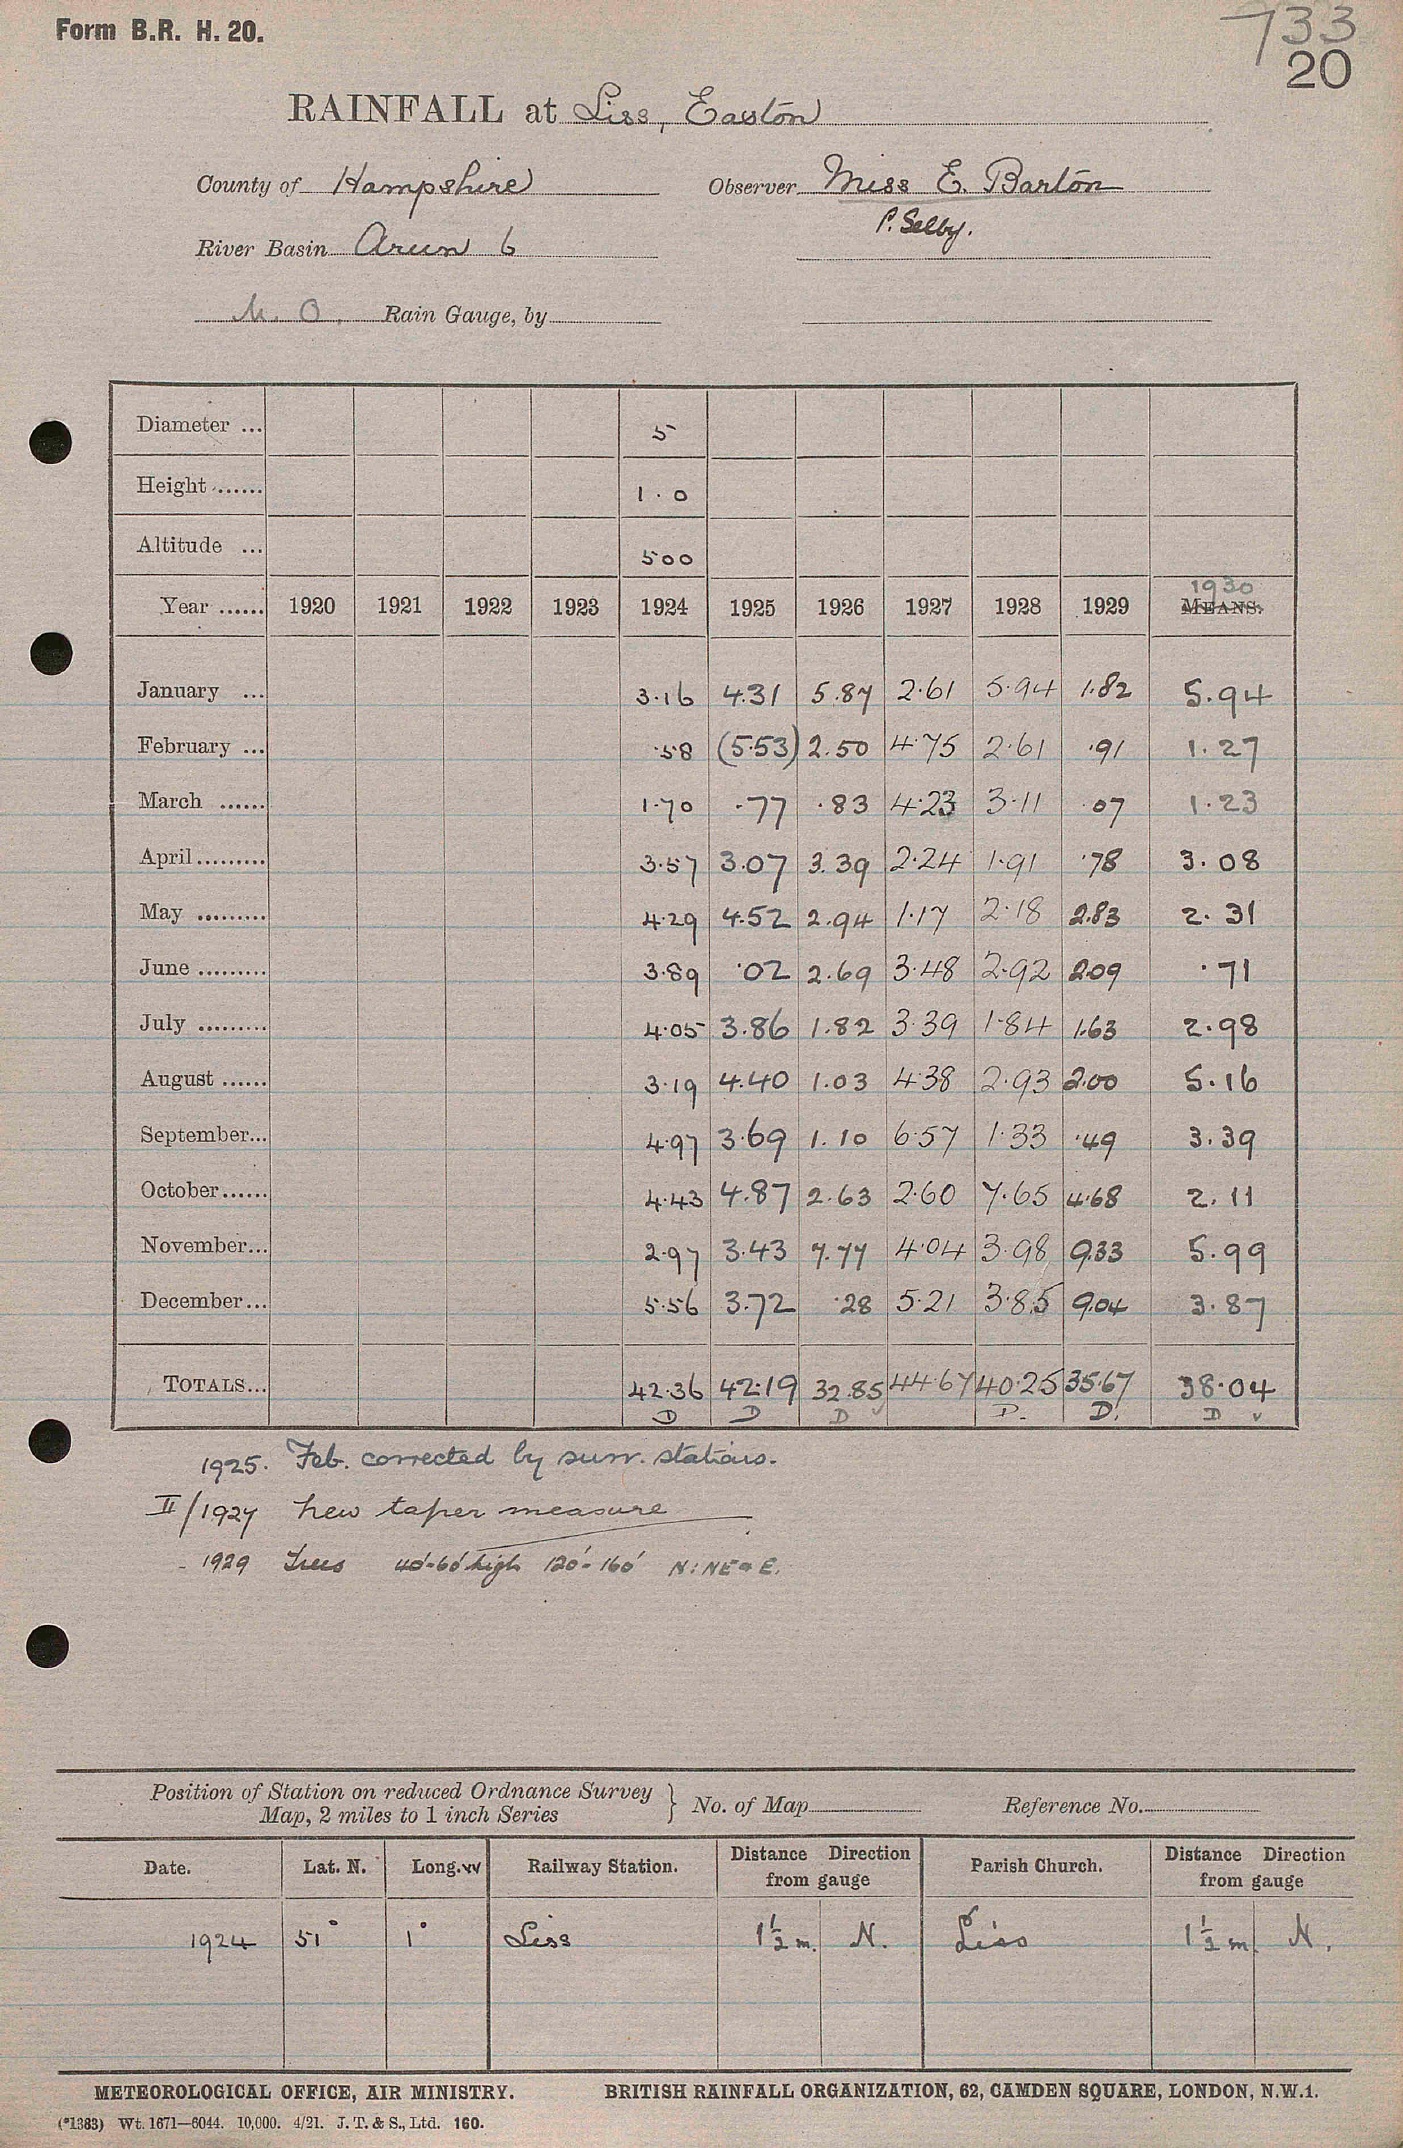 Form B.R. H. 20.
733
20
RAINFALL at Liss, Easton
County of Hampshire Observer Miss E. Barton
P. Selby.
River Basin Arun 6
M. O. Rain Gauge, by
Diameter ... 5
Height ...... 1.0
Altitude ... 500
1930
Year ...... 1920 1921 1922 1923 1924 1925 1926 1927 1928 1929 MEANS.
January ... 3.16 4.31 5.87 2.61 5.94 1.82 5.94
February ... .58 (5.53) 2.50 4.75 2.61 .91 1.27
March ...... 1.70 .77 .83 4.23 3.11 .07 1.23
April ......... 3.57 3.07 3.39 2.24 1.91 .78 3.08
May ......... 4.29 4.52 2.94 1.17 2.18 2.83 2.31
June ......... 3.89 .02 2.69 3.48 2.92 2.09 .71
July ......... 4.05 3.86 1.82 3.39 1.84 1.63 2.98
August ...... 3.19 4.40 1.03 4.38 2.93 2.00 5.16
September... 4.97 3.69 1.10 6.57 1.33 .49 3.39
October...... 4.43 4.87 2.63 2.60 7.65 4.68 2.11
November... 2.97 3.43 7.77 4.04 3.98 9.33 5.99
December... 5.56 3.72 .28 5.21 3.85 9.04 3.87
TOTALS... 42.36 42.19 32.85 44.67 40.25 35.67 38.04
D D D D. D. D
1925. Feb. corrected by surr. stations.
II/1927 New taper measure
1929 Trees 40'-60' high 120'-160' N: NE & E.
Position of Station on reduced Ordnance Survey
Map, 2 miles to 1 inch Series } No. of Map Reference No.
Date. Lat. N. Long. W Railway Station. Distance Direction from gauge Parish Church. Distance Direction from gauge
1924 51° 1° Liss 1½ m. N. Liss 1½ m N.
METEOROLOGICAL OFFICE, AIR MINISTRY. BRITISH RAINFALL ORGANIZATION, 62, CAMDEN SQUARE, LONDON, N.W.1.
(*1383) Wt. 1671—6044. 10,000. 4/21. J. T. & S., Ltd. 160.